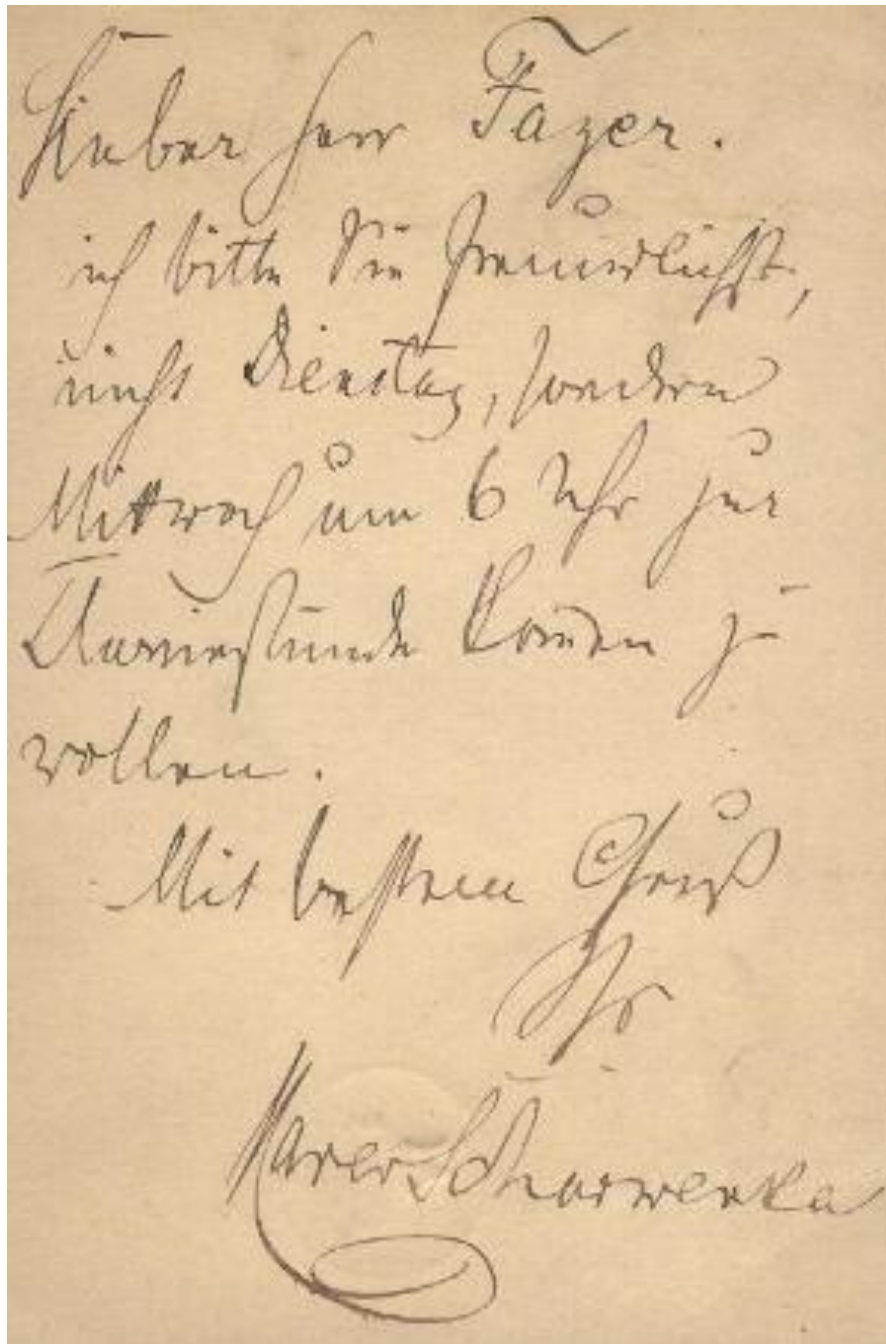 Lieber Herr Fazer.
ich bitte Sie freundlichst,
nicht Dienstag, sondern
Mittwoch um 6 Uhr zur
Clavierstunde kom̅en zu
wollen.
Mit bestem Gruß
Ihr
Xaver Scharwenka